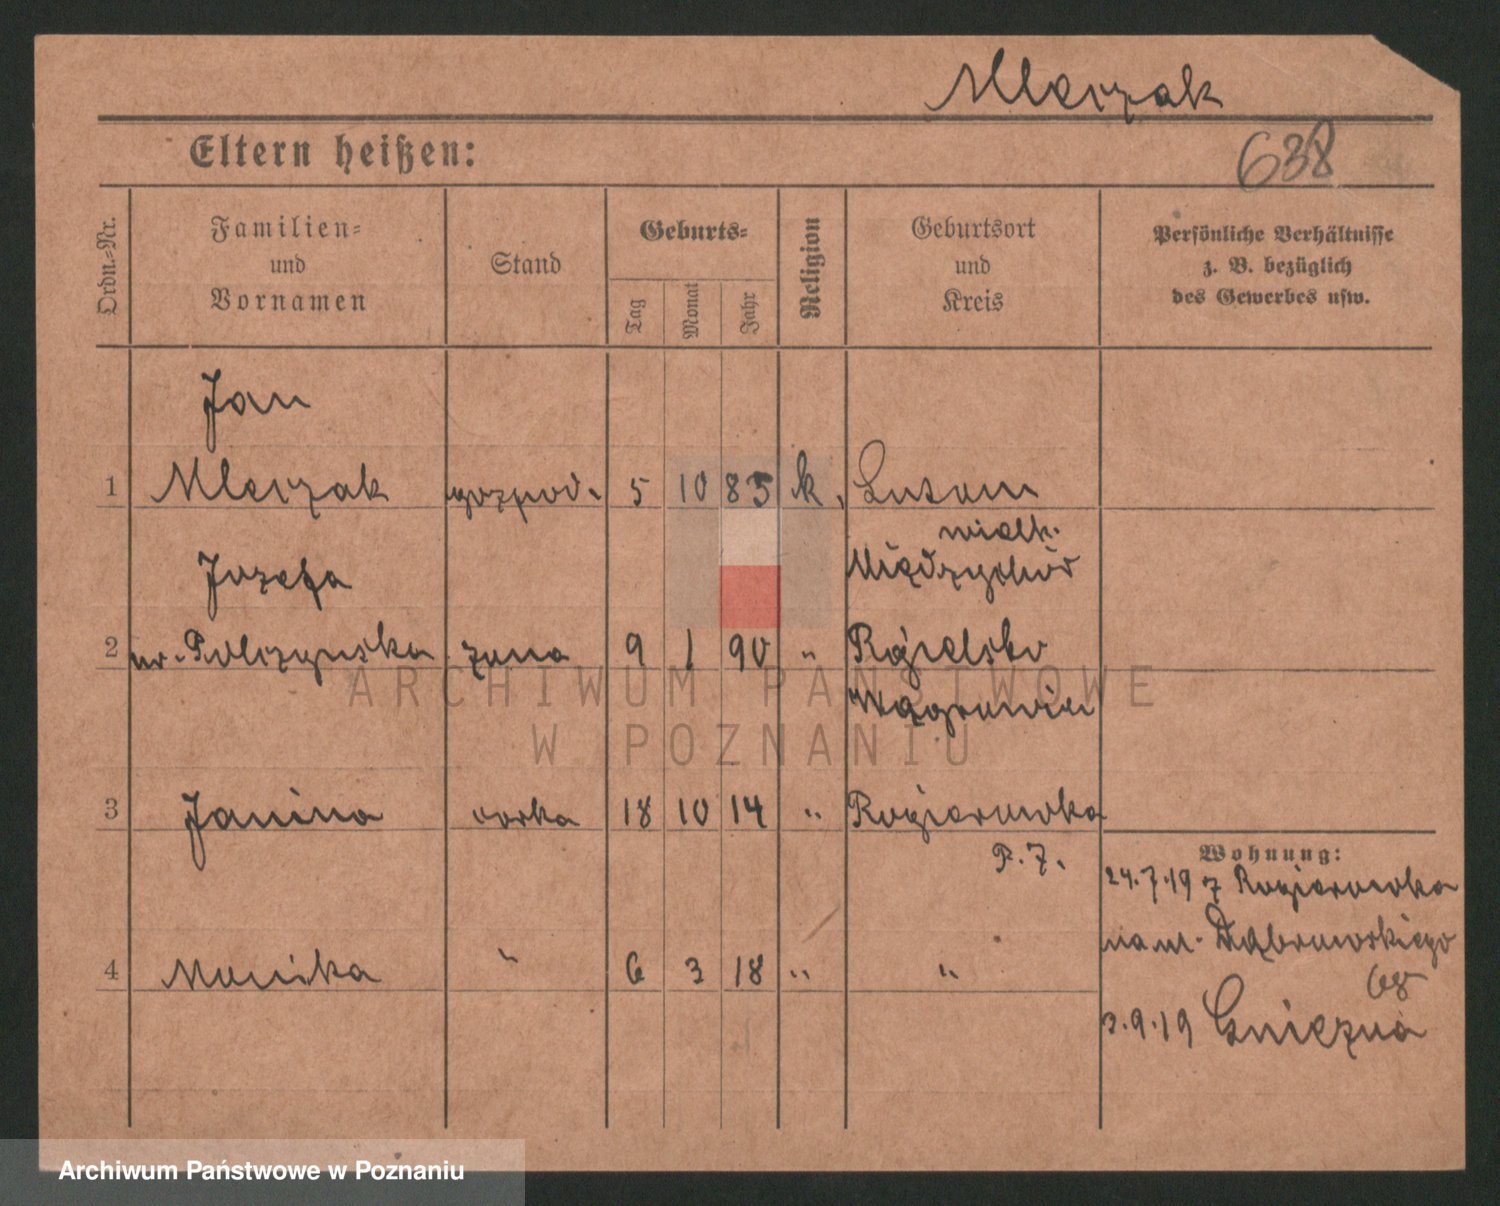 Mleczak
Eltern heißen:
638
Ordn.-Nr.
Familien-
und
Vornamen
Stand
Geburts-
Tag
Monat
Jahr
Religion
Geburtsort
und
Kreis
Persönliche Verhältnisse
z. B. bezüglich
des Gewerbes usw.
Jan
1 Mleczak gospod. 5 10 85 k.
wielk.
Międzychód
Józefa
2 ur. Polczyńska żona 9 1 90 " Rgielsko
Wągrowiec
3 Janina corka 18 10 14 " Rogierówka
P. Z.
4 Monika " 6 3 18 " "
Wohnung:
24.7.19 z Rogierowka
na ul. Dąbrowskiego
68
3.9.19 Gniezna
ARCHIWUM PAŃSTWOWE
W POZNANIU
Archiwum Państwowe w Poznaniu